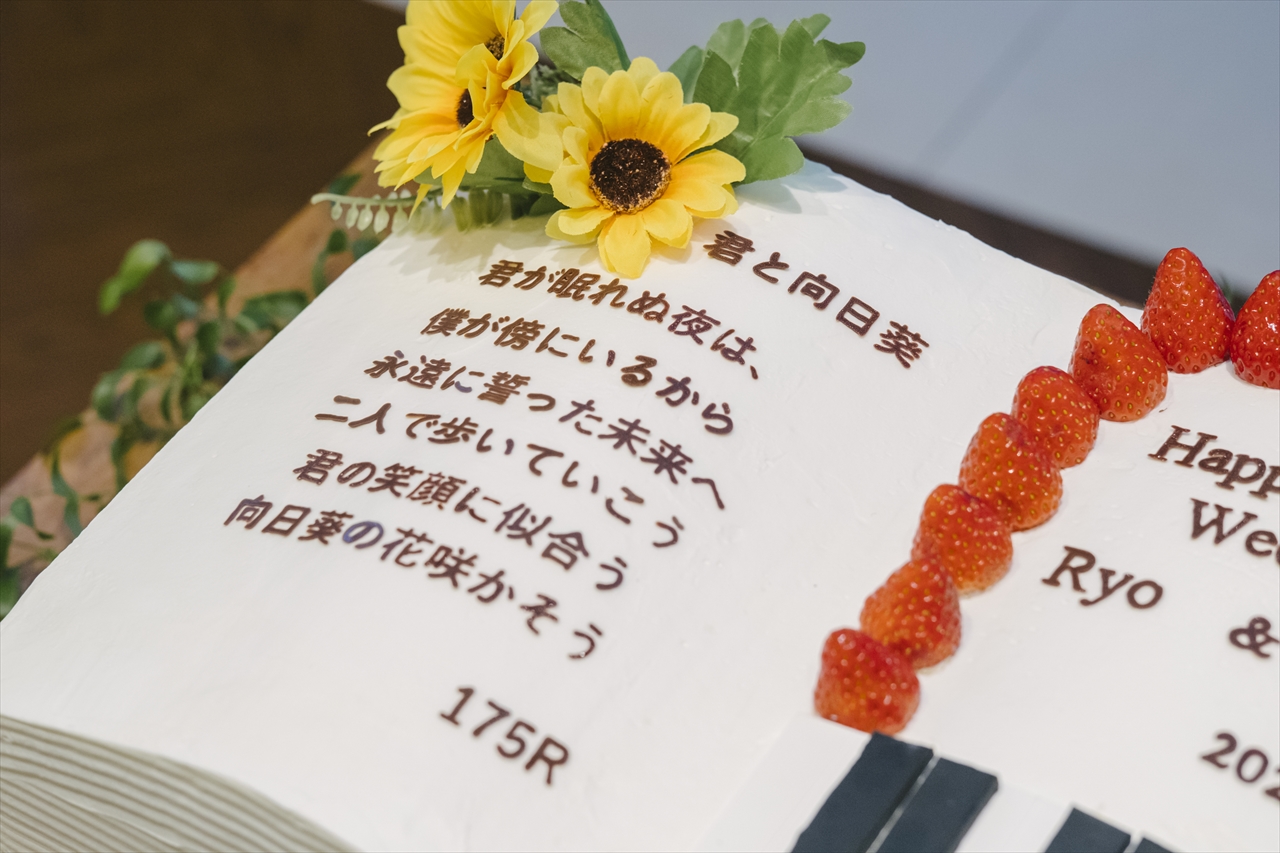 君と向日葵
君が眠れぬ夜は、
僕が傍にいるから
永遠に誓った未来へ
二人で歩いていこう
君の笑顔に似合う
向日葵の花咲かそう
175R
Happ
Wed
Ryo &
202